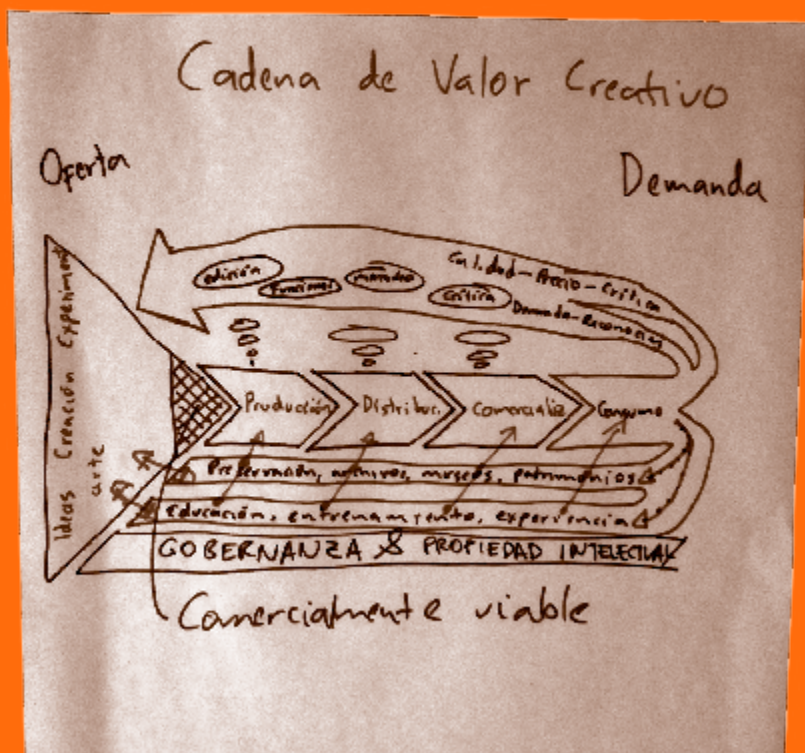 Cadena de Valor Creativo
Oferta
Demanda
Calidad-Precio-Crítica
Demanda-Reconoci
edición
Funciones
mercadeo
crítica
Ideas Creación Experiment
arte
Producción
Distribuc.
Comercializ
Consumo
Preservación, archivos, museos, patrimonios
educación, entrenamiento, experiencia
GOBERNANZA & PROPIEDAD INTELECTUAL
Comercialmente viable